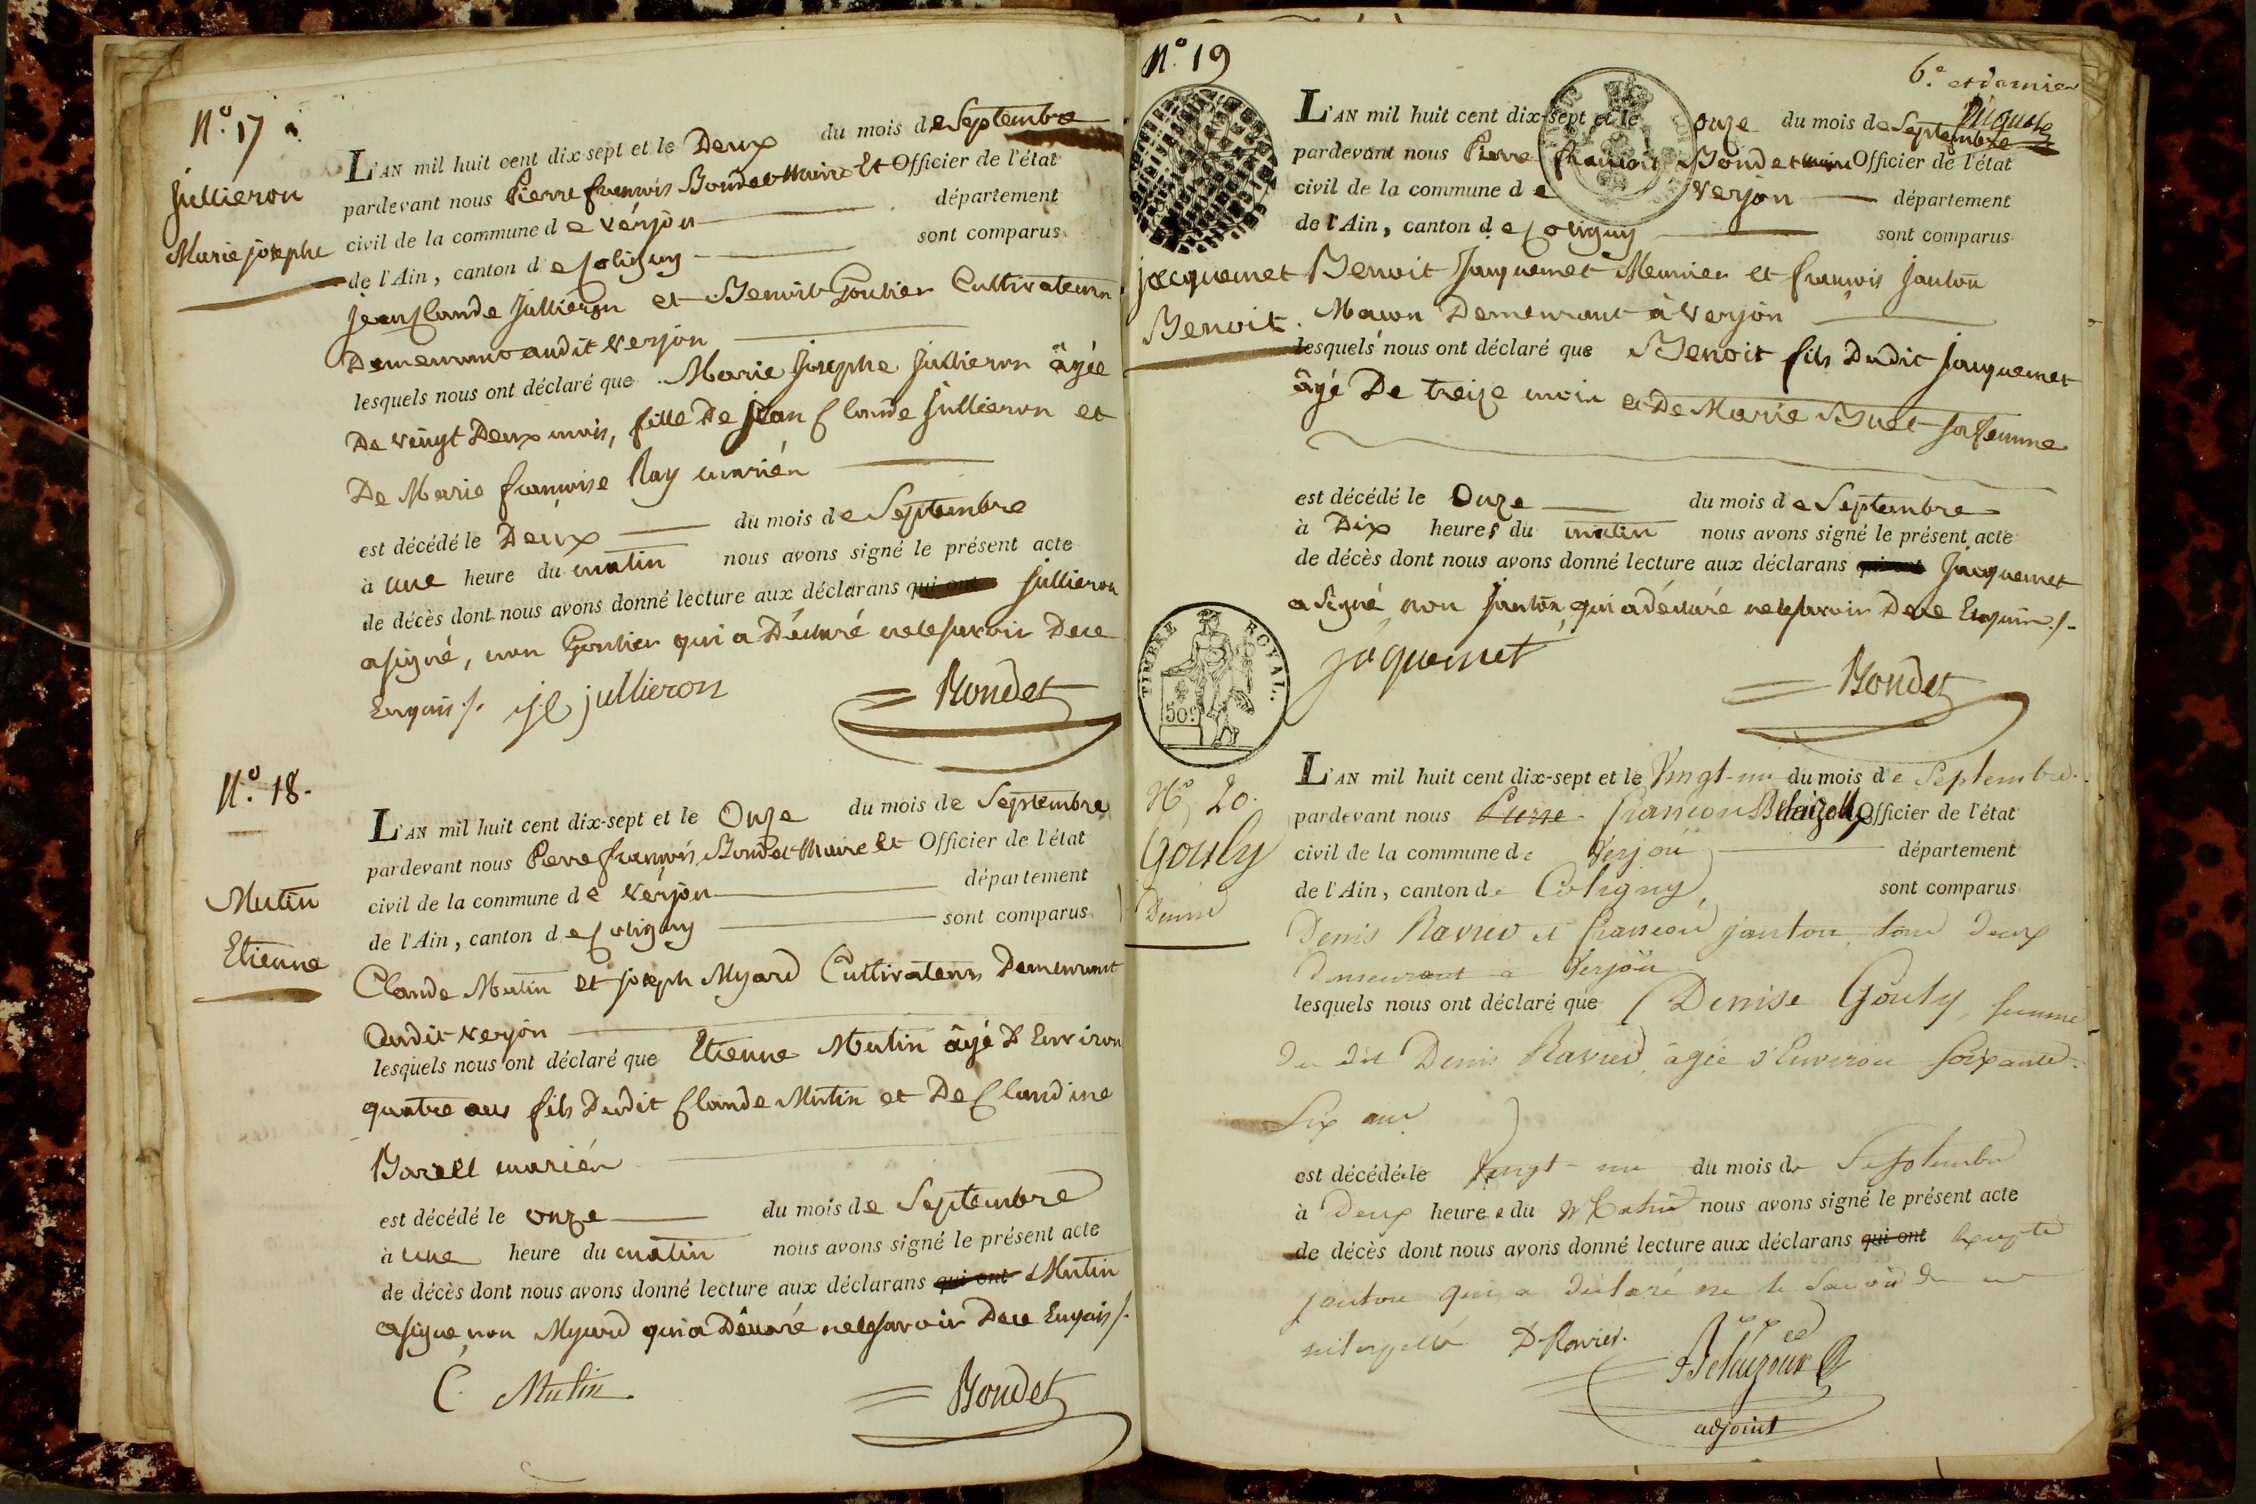 N.º 17
Jullieron
Marie josephe
L'AN mil huit cent dix-sept et le Deux du mois de Septembre
pardevant nous Pierre françois Bondet Maire Et Officier de l'état
civil de la commune de verjon département
de l'Ain, canton de Coligny sont comparus
jean Claude Jullieron et Benoit Goutier Cultivateurs
Demeurant audit verjon
lesquels nous ont déclaré que Marie Josephe Jullieron âgée
De vingt Deux mois, fille De Jean Claude Jullieron et
De Marie françoise Ray mariés
est décédé le Deux du mois de Septembre
à une heure du matin nous avons signé le présent acte
de décès dont nous avons donné lecture aux déclarans qui ont Jullieron
a signé, non Goutier qui a Déclaré ne le savoir De ce
Enquis ./. j C jullieron Bondet
N.º 18.
Mutin
Etienne
L'AN mil huit cent dix-sept et le Onze du mois de Septembre
pardevant nous Pierre françois Bondet Maire Et Officier de l'état
civil de la commune de verjon département
de l'Ain, canton de Coligny sont comparus
Claude Mutin et joseph Myard Cultivateurs Demeurant
Audit verjon
lesquels nous ont déclaré que Etienne Mutin âgé D'Environ
quatre ans fils Dudit Claude Mutin et De Claudine
mariés
est décédé le onze du mois de Septembre
à une heure du matin nous avons signé le présent acte
de décès dont nous avons donné lecture aux déclarans qui ont Mutin
a signé, non Myard qui a Déclaré ne le savoir De ce Enquis ./.
C. Mutin Bondet
N.º 19
6.e et dernier
L'AN mil huit cent dix-sept et le onze du mois de Septembre
pardevant nous Pierre françois Bondet maire Officier de l'état
civil de la commune de verjon département
de l'Ain, canton de Coligny sont comparus
jacquemet Benoit Jacquemet Meunier et françois Janton
Benoit. Maçon Demeurant à verjon
lesquels nous ont déclaré que Benoit fils Dudit Jacquemet
âgé De treize mois et De Marie Buet sa femme
est décédé le Onze du mois de Septembre
à Dix heures du matin nous avons signé le présent acte
de décès dont nous avons donné lecture aux déclarans qui ont Jacquemet
a signé, non Janton, qui a déclaré ne le savoir De ce Enquis ./.
jaquemet
Bondet
TIMBRE ROYAL.
50c
N.º 20.
Gouly
Denise
L'AN mil huit cent dix-sept et le Vingt-un du mois de Septembre
pardevant nous Pierre françois Officier de l'état
civil de la commune de Verjon département
de l'Ain, canton de Coligny, sont comparus
Denis Ravier et francois janton tous deux
demeurant a Verjon
lesquels nous ont déclaré que Denise Gouly, femme
du dit Denis Ravier, âgée d'Environ soixante
six ans
est décédé le Vingt-un du mois de Septembre
à Deux heures du Matin nous avons signé le présent acte
de décès dont nous avons donné lecture aux déclarans qui ont Excepté
janton qui a declaré ne le savoir de ce
interpellé D Ravier.
adjoint